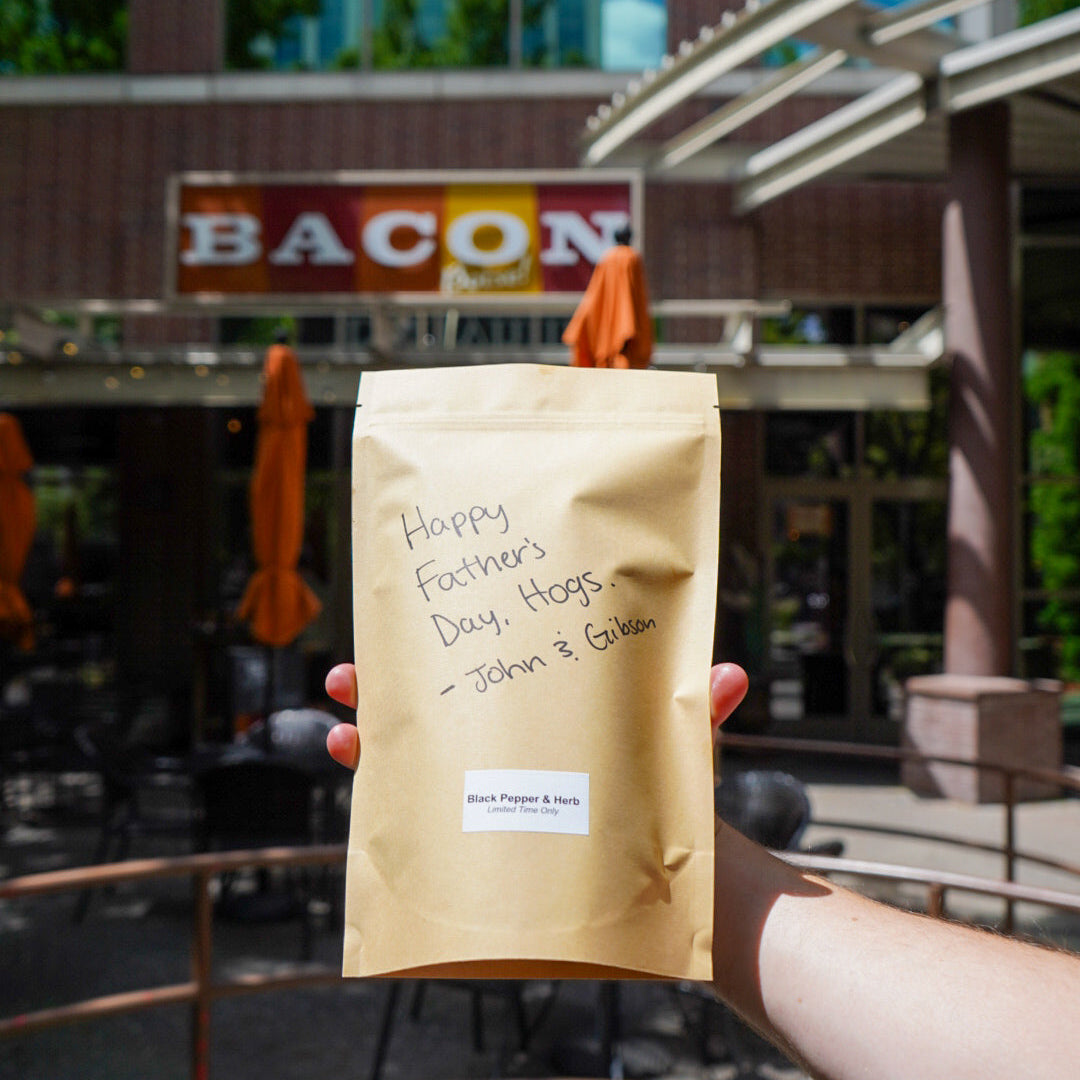 BACON
Happy
Father's
Day, Hogs.
- John & Gibson
Black Pepper & Herb
Limited Time Only